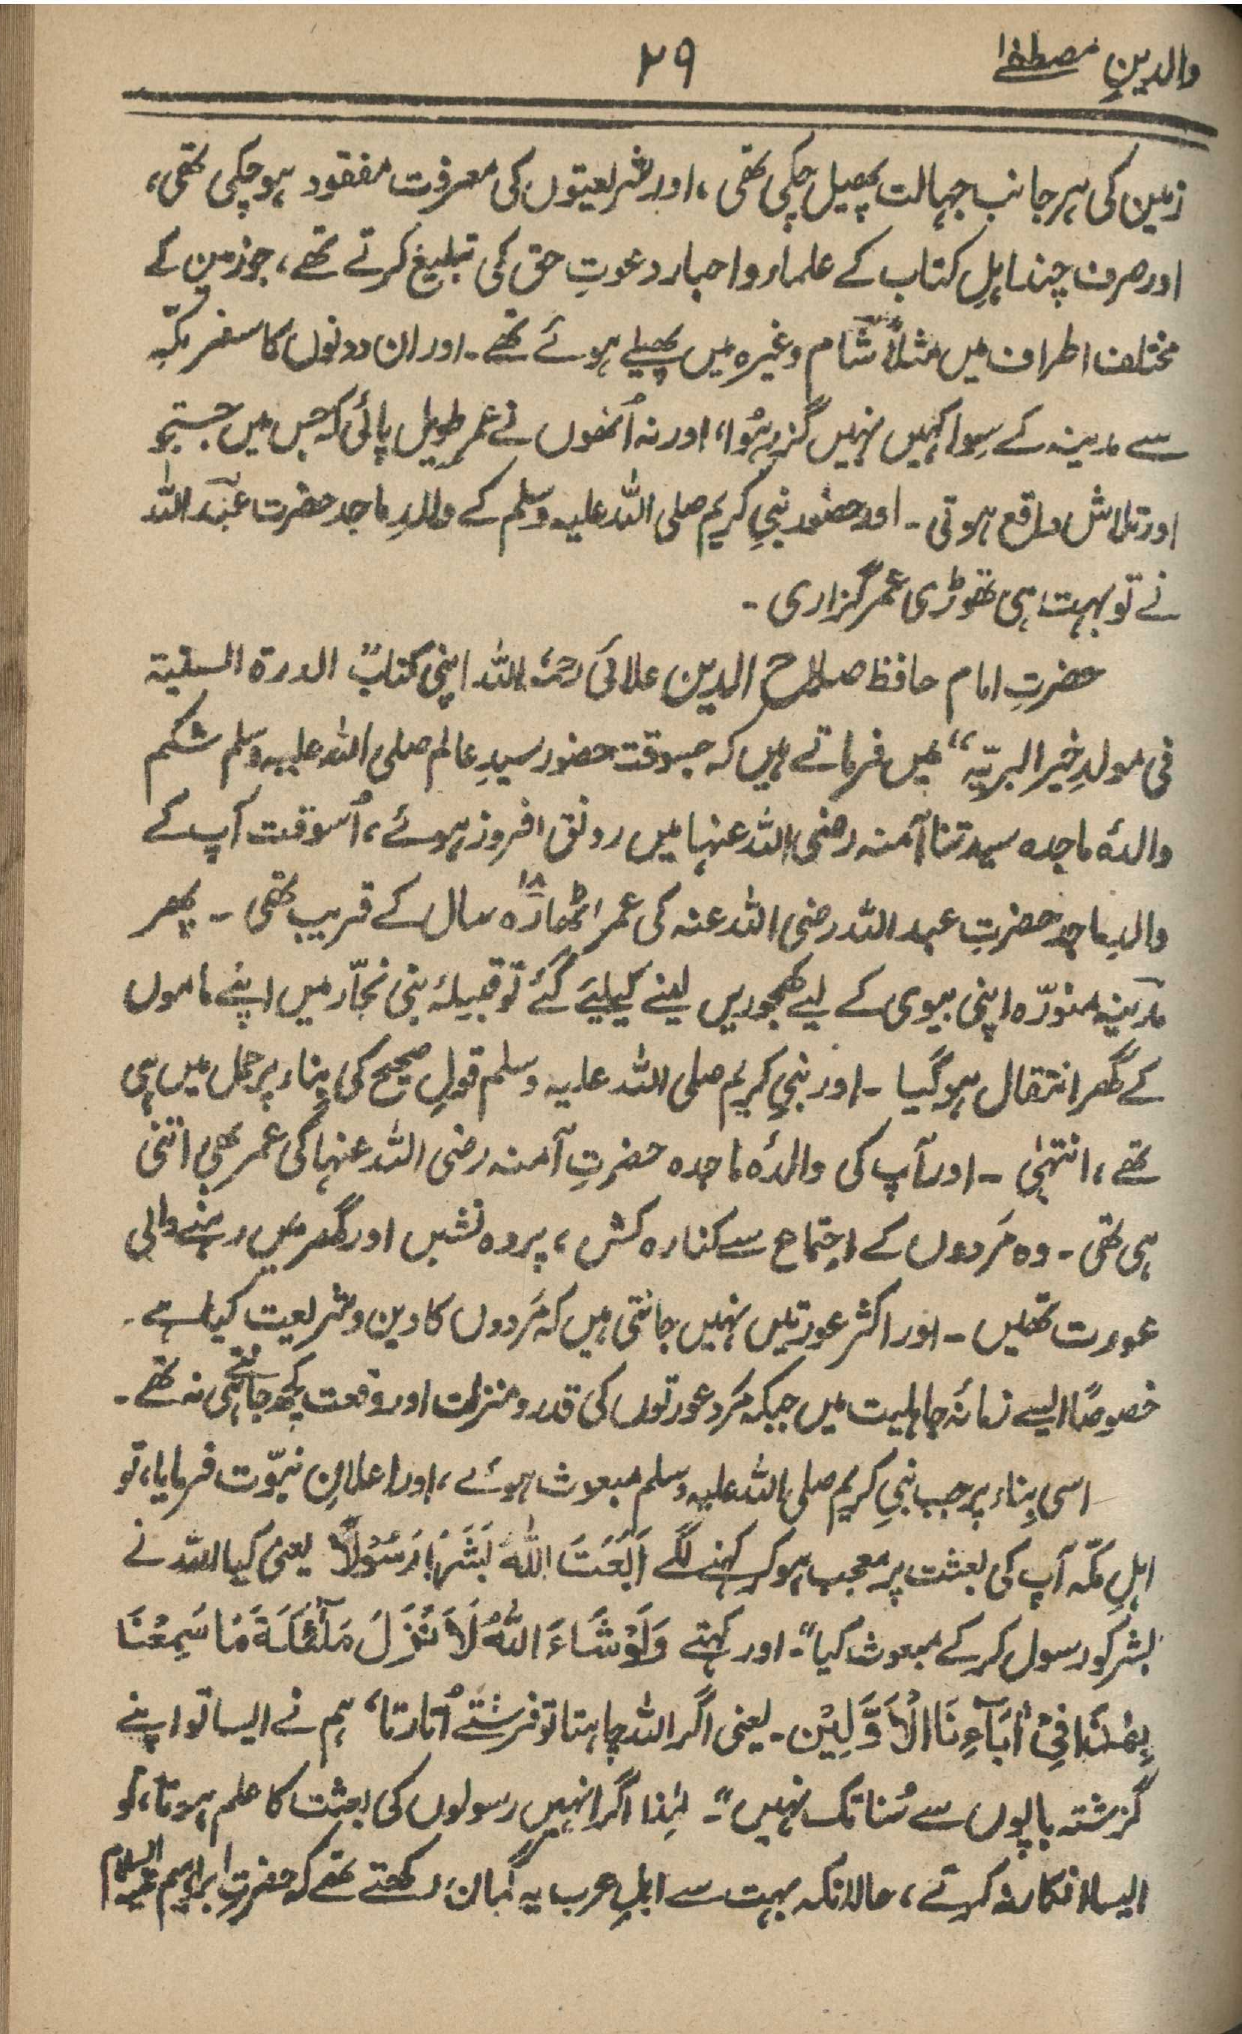 والدینِ مصطفےٰ ۲۹
زمین کی ہر جانب جہالت پھیل چکی تھی، اور شریعتوں کی معرفت مفقود ہوچکی تھی،
اور صرف چند اہلِ کتاب کے علماء و احبار دعوتِ حق کی تبلیغ کرتے تھے، جو زمین کے
مختلف اطراف میں مثلاً شام وغیرہ میں پھیلے ہوئے تھے۔ اور ان دونوں کا سفر مکّہ
سے مدینہ کے سوا کہیں نہیں گزر ہُوا، اور نہ اُنھوں نے عمرِ طویل پائی کہ جس میں جستجو
اور تلاش واقع ہوتی۔ اور حضور نبیِ کریم صلی اللہ علیہ وسلم کے والدِ ماجد حضرت عبد اللہ
نے تو بہت ہی تھوڑی عمر گزاری۔
حضرتِ امام حافظ صلاح الدین علائی رحمۃ اللہ اپنی کتاب "الدرۃ السنیۃ
فی مولدِ خیر البریّہ" میں فرماتے ہیں کہ جسوقت حضور سیدِ عالم صلی اللہ علیہ وسلم شکم
والدۂ ماجدہ سیدتنا آمنہ رضی اللہ عنہا میں رونق افروز ہوئے، اُسوقت آپ کے
والدِ ماجد حضرتِ عبد اللہ رضی اللہ عنہ کی عمر اٹھارہ ۱۸ سال کے قریب تھی۔ پھر
مدینہ منورّہ اپنی بیوی کے لیے کھجوریں لینے کیلیے گئے تو قبیلۂ بنی نجّار میں اپنے ماموں
کے گھر انتقال ہوگیا۔ اور نبیِ کریم صلی اللہ علیہ وسلم قولِ صحیح کی بناء پر حمل میں ہی
تھے، انتہیٰ۔ اور آپ کی والدۂ ماجدہ حضرتِ آمنہ رضی اللہ عنہا کی عمر بھی اتنی
ہی تھی۔ وہ مَردوں کے اجتماع سے کنارہ کش، پردہ نشیں اور گھر میں رہنے والی
عورت تھیں۔ اور اکثر عورتیں نہیں جانتی ہیں کہ مَردوں کا دین و شریعت کیا ہے۔
خصوصًا ایسے زمانۂ جاہلیت میں جبکہ مَرد عورتوں کی قدر و منزلت اور وقعت کچھ جانتے ہی نہ تھے۔
اسی بِناء پر جب نبیِ کریم صلی اللہ علیہ وسلم مبعوث ہوئے، اور اعلانِ نبوّت فرمایا، تو
اہلِ مکّہ آپ کی بعثت پر معجب ہو کر کہنے لگے اَبَعَثَ اللّٰهُ بَشَرًا رَّسُوْلًا یعنی کیا اللہ نے
بشر کو رسول کر کے مبعوث کیا"۔ اور کہتے وَلَوْ شَآءَ اللّٰهُ لَاَ نْزَلَ مَلٰٓئِکَةً مَّا سَمِعْنَا
بِهٰذَا فِیْ اٰبَآءِنَا الْاَوَّلِیْن۔ یعنی اگر اللہ چاہتا تو فرشتے اُتارتا، ہم نے ایسا تو اپنے
گزشتہ باپوں سے سُنا تک نہیں"۔ لہٰذا اگر انہیں رسولوں کی بعثت کا علم ہوتا، تو
ایسا انکار نہ کرتے، حالانکہ بہت سے اہلِ عرب یہ گمان رکھتے تھے کہ حضرتِ ابراہیم علیہ السلام